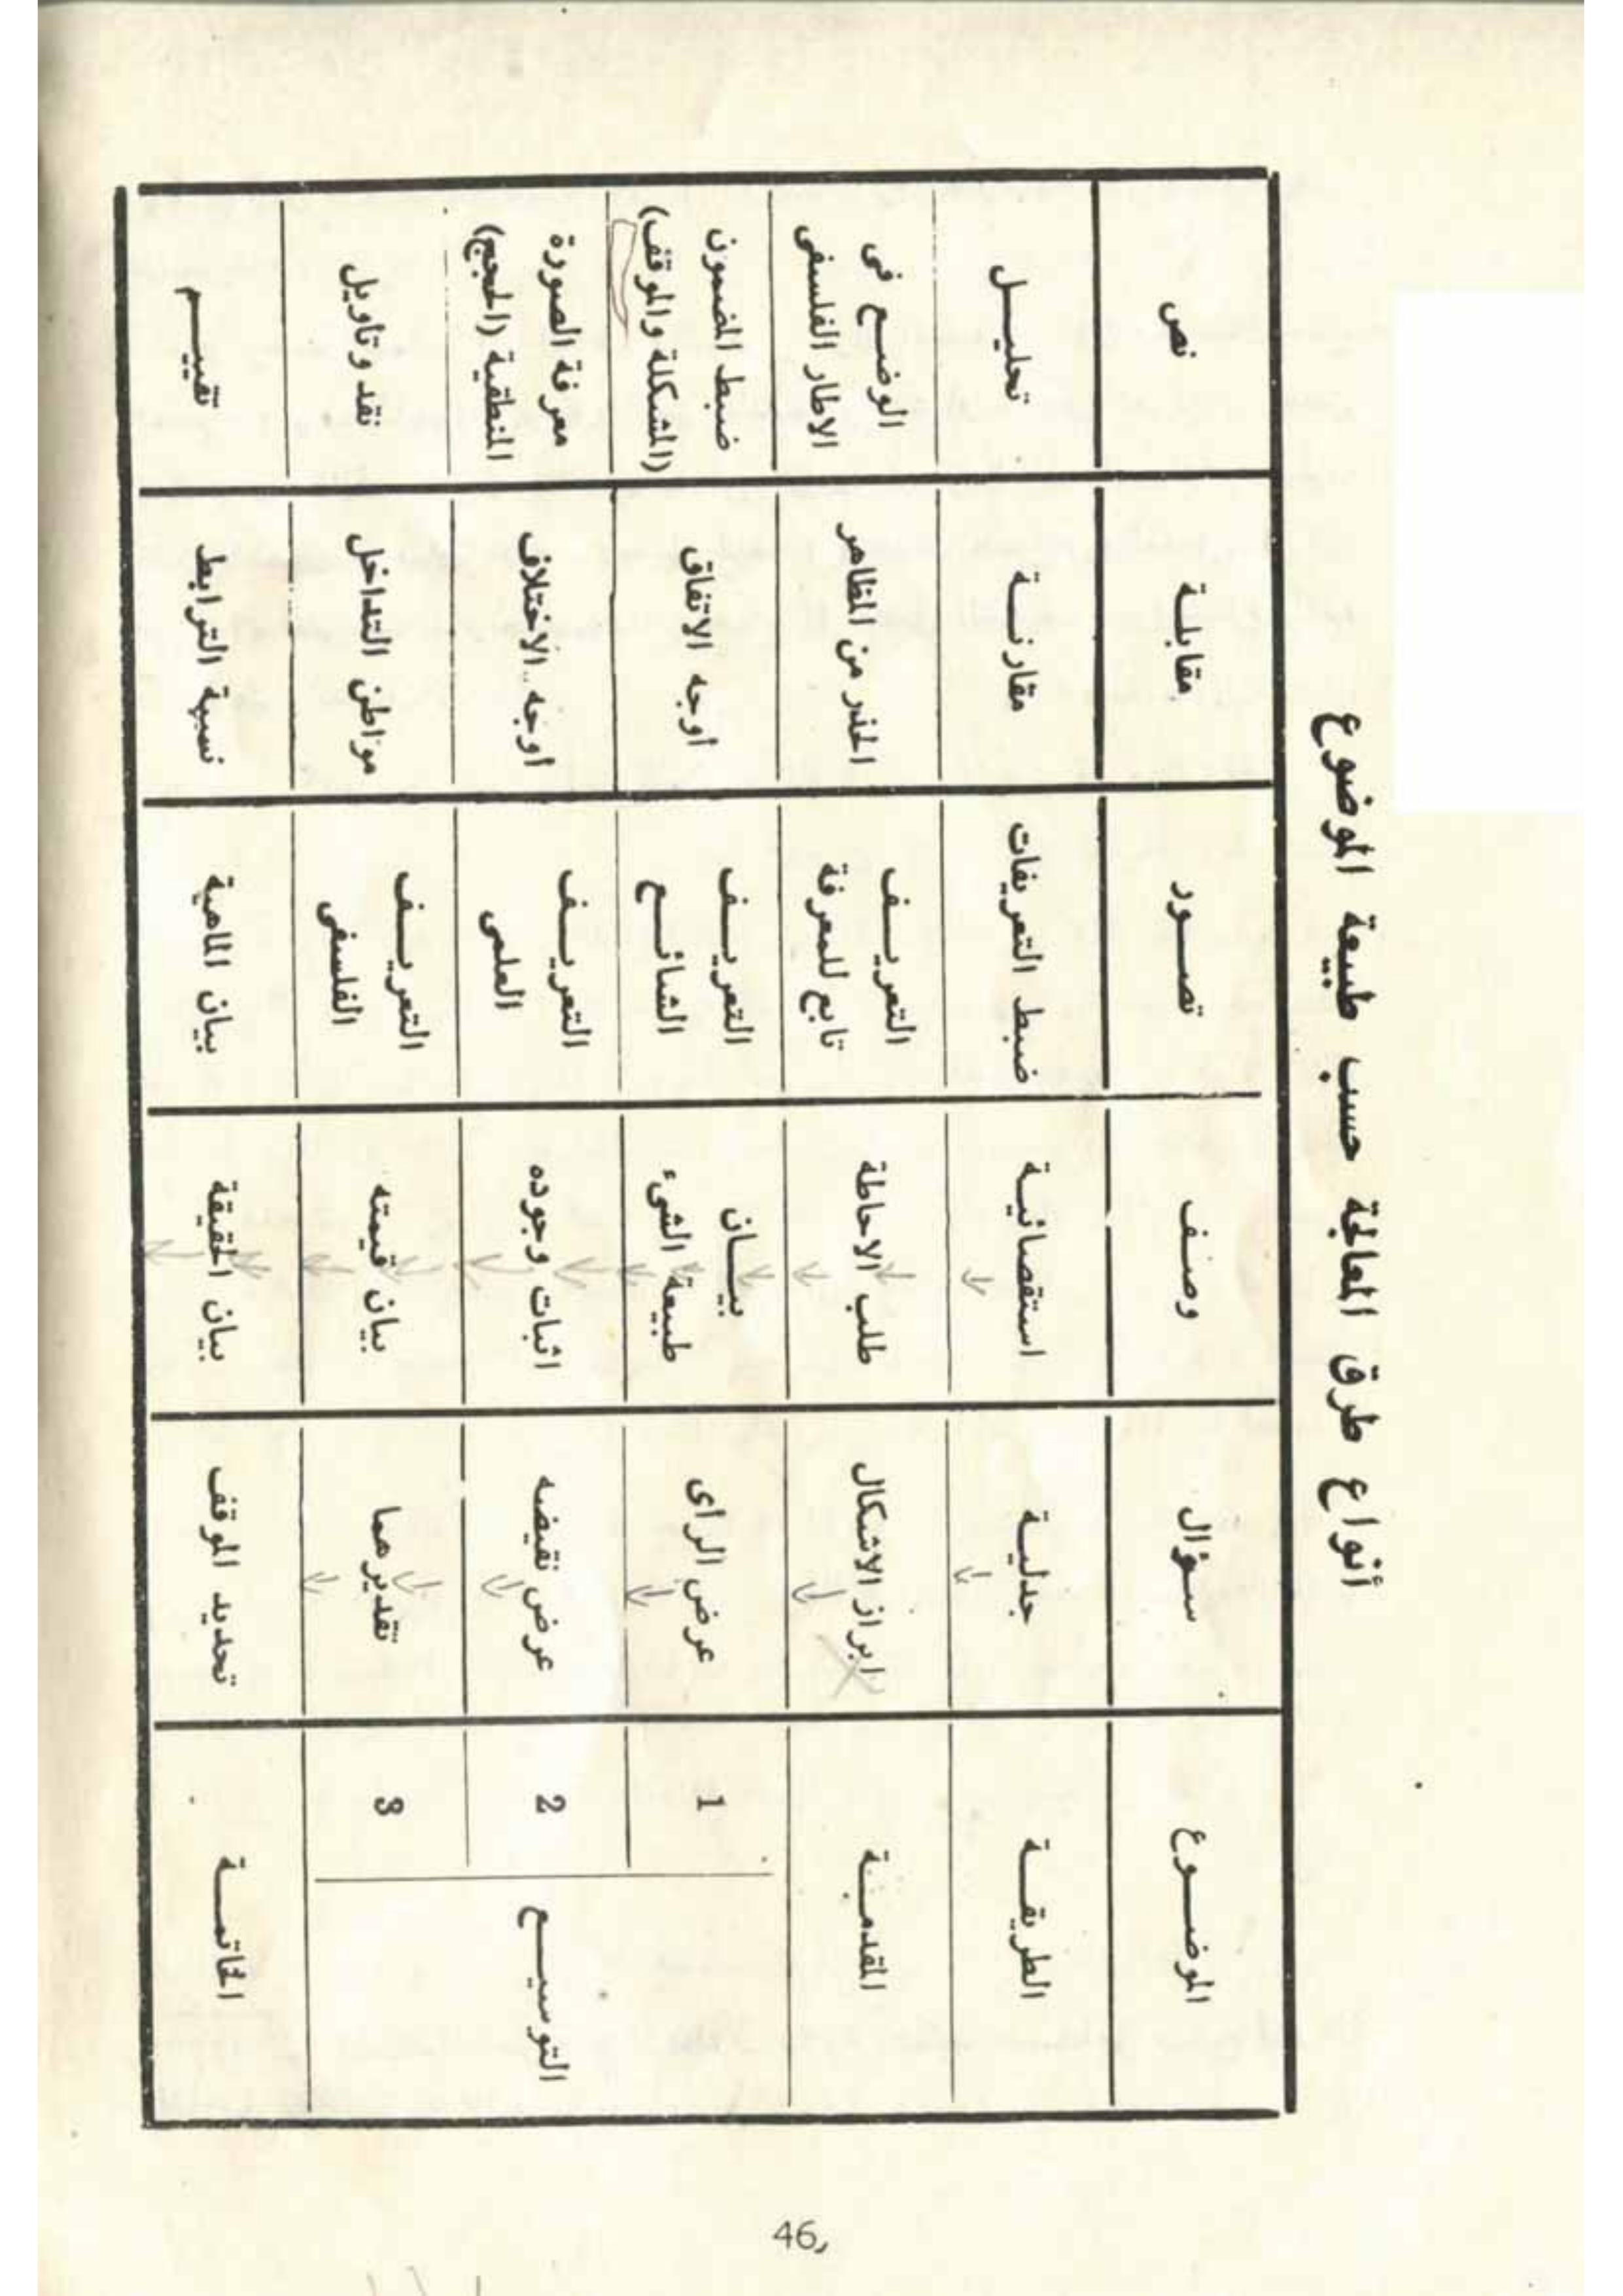 أنواع طرق المعالجة حسب طبيعة الموضوع
الموضـــوع
سـؤال
وصـف
تصــور
مقابلـة
نص
الطريقــة
جدليـة
استقصائيـة
ضبط التعريفات
مقارنـة
تحليـــل
المقدمــة
ابراز الاشكال
طلب الاحاطة
التعريــف
تابع للمعرفة
الحذر من المظاهر
الوضــع فى
الاطار الفلسفى
التوسيـــع
1
عرض الراى
بيــان
طبيعة الشىء
التعريــف
الشائــع
اوجه الاتفاق
ضبط المضمون
(المشكلة والموقف)
2
عرض نقيضه
اثبات وجوده
التعريــف
العلمى
اوجه الاختلاف
معرفة الصورة
المنطقية (الحجج)
3
تقديرهما
بيان قيمته
التعريــف
الفلسفى
مواطن التداخل
نقد وتاويل
الخاتمــة
تحديد الموقف
بيان الحقيقة
بيان الماهية
نسبة الترابط
تقييـــم
46,